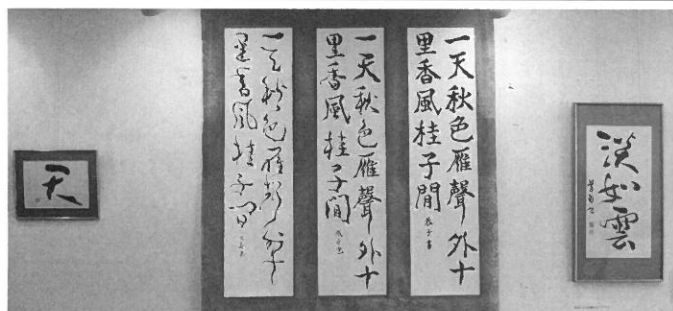 淡如雲
一天秋色雁聲外十
里香風桂子間
恭子書
一天秋色雁聲外十
里香風桂子間
一天秋色雁聲外十
里香風桂子間
天